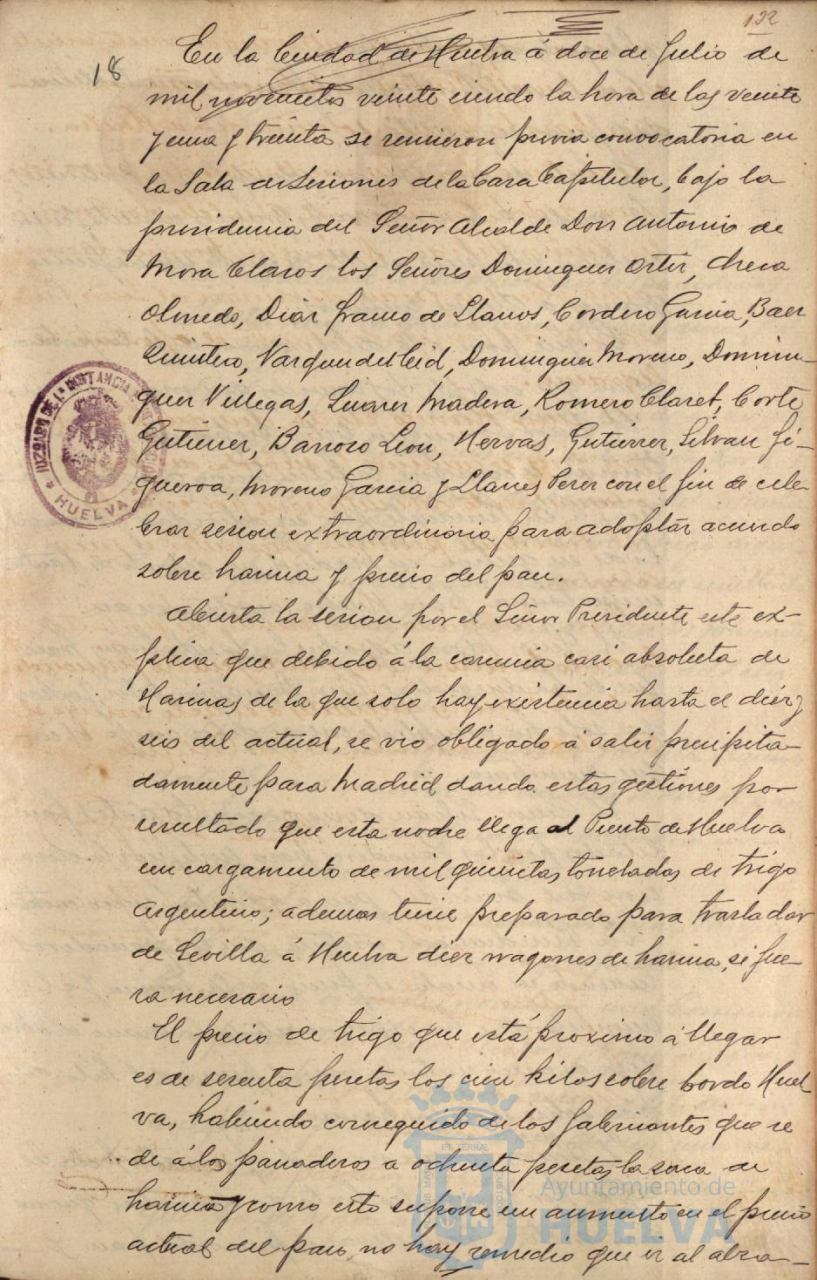 122
18
En la Ciudad de Huelva á doce de Julio de
mil novecientos veinte siendo la hora de las veinte
y una y treinta se reunieron previa convocatoria en
la Sala de Sesiones de la Casa Capitular, bajo la
presidencia del Señor Alcalde Don Antonio de
Mora Claros los Señores Dominguez Ortiz, Checa
Olmedo, Diaz Franco de Llanos, Cordero Garcia, Baez
Quintero, Vazquez del Cid, Dominguez Moreno, Domin-
guez Villegas, Suarez Madera, Romero Claret, Corte
Gutierrez, Barroso Leon, Hervas, Gutierrez, Silvan Fi-
gueroa, Moreno Garcia y Llanes Perez con el fin de cele-
brar sesion extraordinaria para adoptar acuerdo
sobre harina y precio del pan.
Abierta la sesion por el Señor Presidente este ex-
plica que debido á la carencia casi absoluta de
Harinas de la que solo hay existencia hasta el diez y
seis del actual, se vio obligado á salir precipita-
damente para Madrid dando estas gestiones por
resultado que esta noche llega al Puerto de Huelva
un cargamento de mil quinientas toneladas de trigo
Argentino; ademas tiene preparado para trasladar
de Sevilla á Huelva diez wagones de harina, si fue-
ra necesario
El precio de trigo que está proximo á llegar
es de sesenta pesetas los cien kilos sobre bordo Huel-
va, habiendo conseguido de los fabricantes que se
dé á los panaderos a ochenta pesetas la saca de
harina y como esto supone un aumento en el precio
actual del pan, no hay remedio que ir al alza-
JUZGADO DE 1ª INSTANCIA
HUELVA
Ayuntamiento de
HUELVA